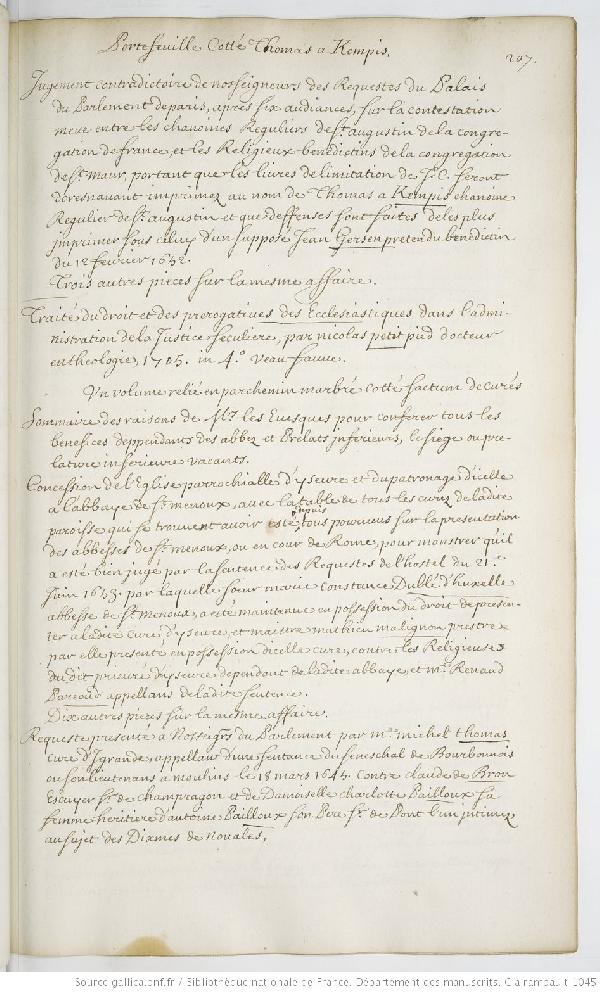 Portefeuille Cotté Thomas a Kempis.
207.
Jugement contradictoire de nosseigneurs des Requestes du Palais
du Parlement de paris, apres six audiances, sur la contestation
meue entre les chanoines Reguliers de St. augustin de la congre-
gation de france, et les Religieux benedictins de la congregation
de St. maur, portant que les livres de limitation de J. C. seront
doresnavant imprimez au nom de Thomas a Kempis chanoine
Regulier de St. augustin et que deffenses sont faites de les plus
imprimer sous celuy d'un supposé Jean Gersen pretendu benedictin
du 12 fevrier 1652.
Trois autres pieces sur la mesme affaire.
Traité du droit et des prerogatives des Ecclesiastiques dans l'admi-
nistration de la Justice seculiere, par nicolas petit pied docteur
en theologie, 1705. in 4.° veau fauve.
Un volume relié en parchemin marbré cotté factum de curés
Sommaire des raisons de Mrs. les Evesques pour conferer tous les
benefices deppendants des abbez et Prelats inferieurs, le siege ou pre-
lature inferieure vacants.
Concession de l'Eglise parrochialle d'yseure et du patronage d'icelle
a l'abbaye de St. menoux, avec la table de tous les curez de ladite
paroisse qui se trouvent avoir esté depuis tous pourveus sur la presentation
des abbesses de St. menoux, ou en cour de Rome, pour monstrer qu'il
a esté bien jugé par la sentence des Requestes de l'hostel du 21.e
Juin 1653. par laquelle soeur marie Constance Dublé d'huxelle
abbesse de St. Menoux, a esté maintenue en possession du droit de presen-
ter a ladite cure d'yseure, et maistre mathieu malignon prestre
par elle presenté en possession d'icelle cure, contre les Religieuses
du dit prieuré d'yseure dependant de ladite abbaye, et me. Renaud
appellans de ladite sentence.
Dix autres pieces sur la mesme affaire.
Requeste presenté a Nosseigrs du Parlement par me. michel thomas
curé d'Igrande, appellans d'une sentance du seneschal de Bourbonnois
ou son lieutenans a moulins le 18 mars 1645. Contre claude de Bron
Escuyer Sr. de champragon et de Damoiselle charlotte Pailloux sa
femme heritiere d'antoine Pailloux son Pere Sr. de Pont l'un intimez
au sujet des Dixmes de Novales.
Source gallica.bnf.fr / Bibliothèque nationale de France. Département des manuscrits. Clairambault 1045